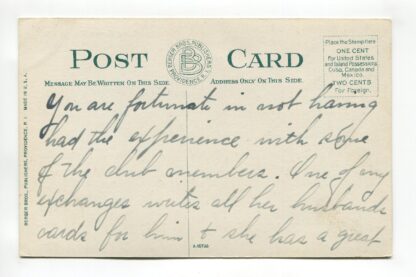 POST CARD
BERGER BROS. PUBLISHERS
PROVIDENCE, R.I.
BB
Place the Stamp Here
ONE CENT
for United States
and Island Possessions,
Cuba, Canada and
Mexico.
TWO CENTS
For Foreign.
MESSAGE MAY BE WRITTEN ON THIS SIDE.
ADDRESS ONLY ON THIS SIDE.
BERGER BROS., PUBLISHERS, PROVIDENCE, R. I. MADE IN U.S.A.
You are fortunate in not having
had the experience with some
of the club members. One of my
exchanges writes all her husbands
cards for him & she has a great